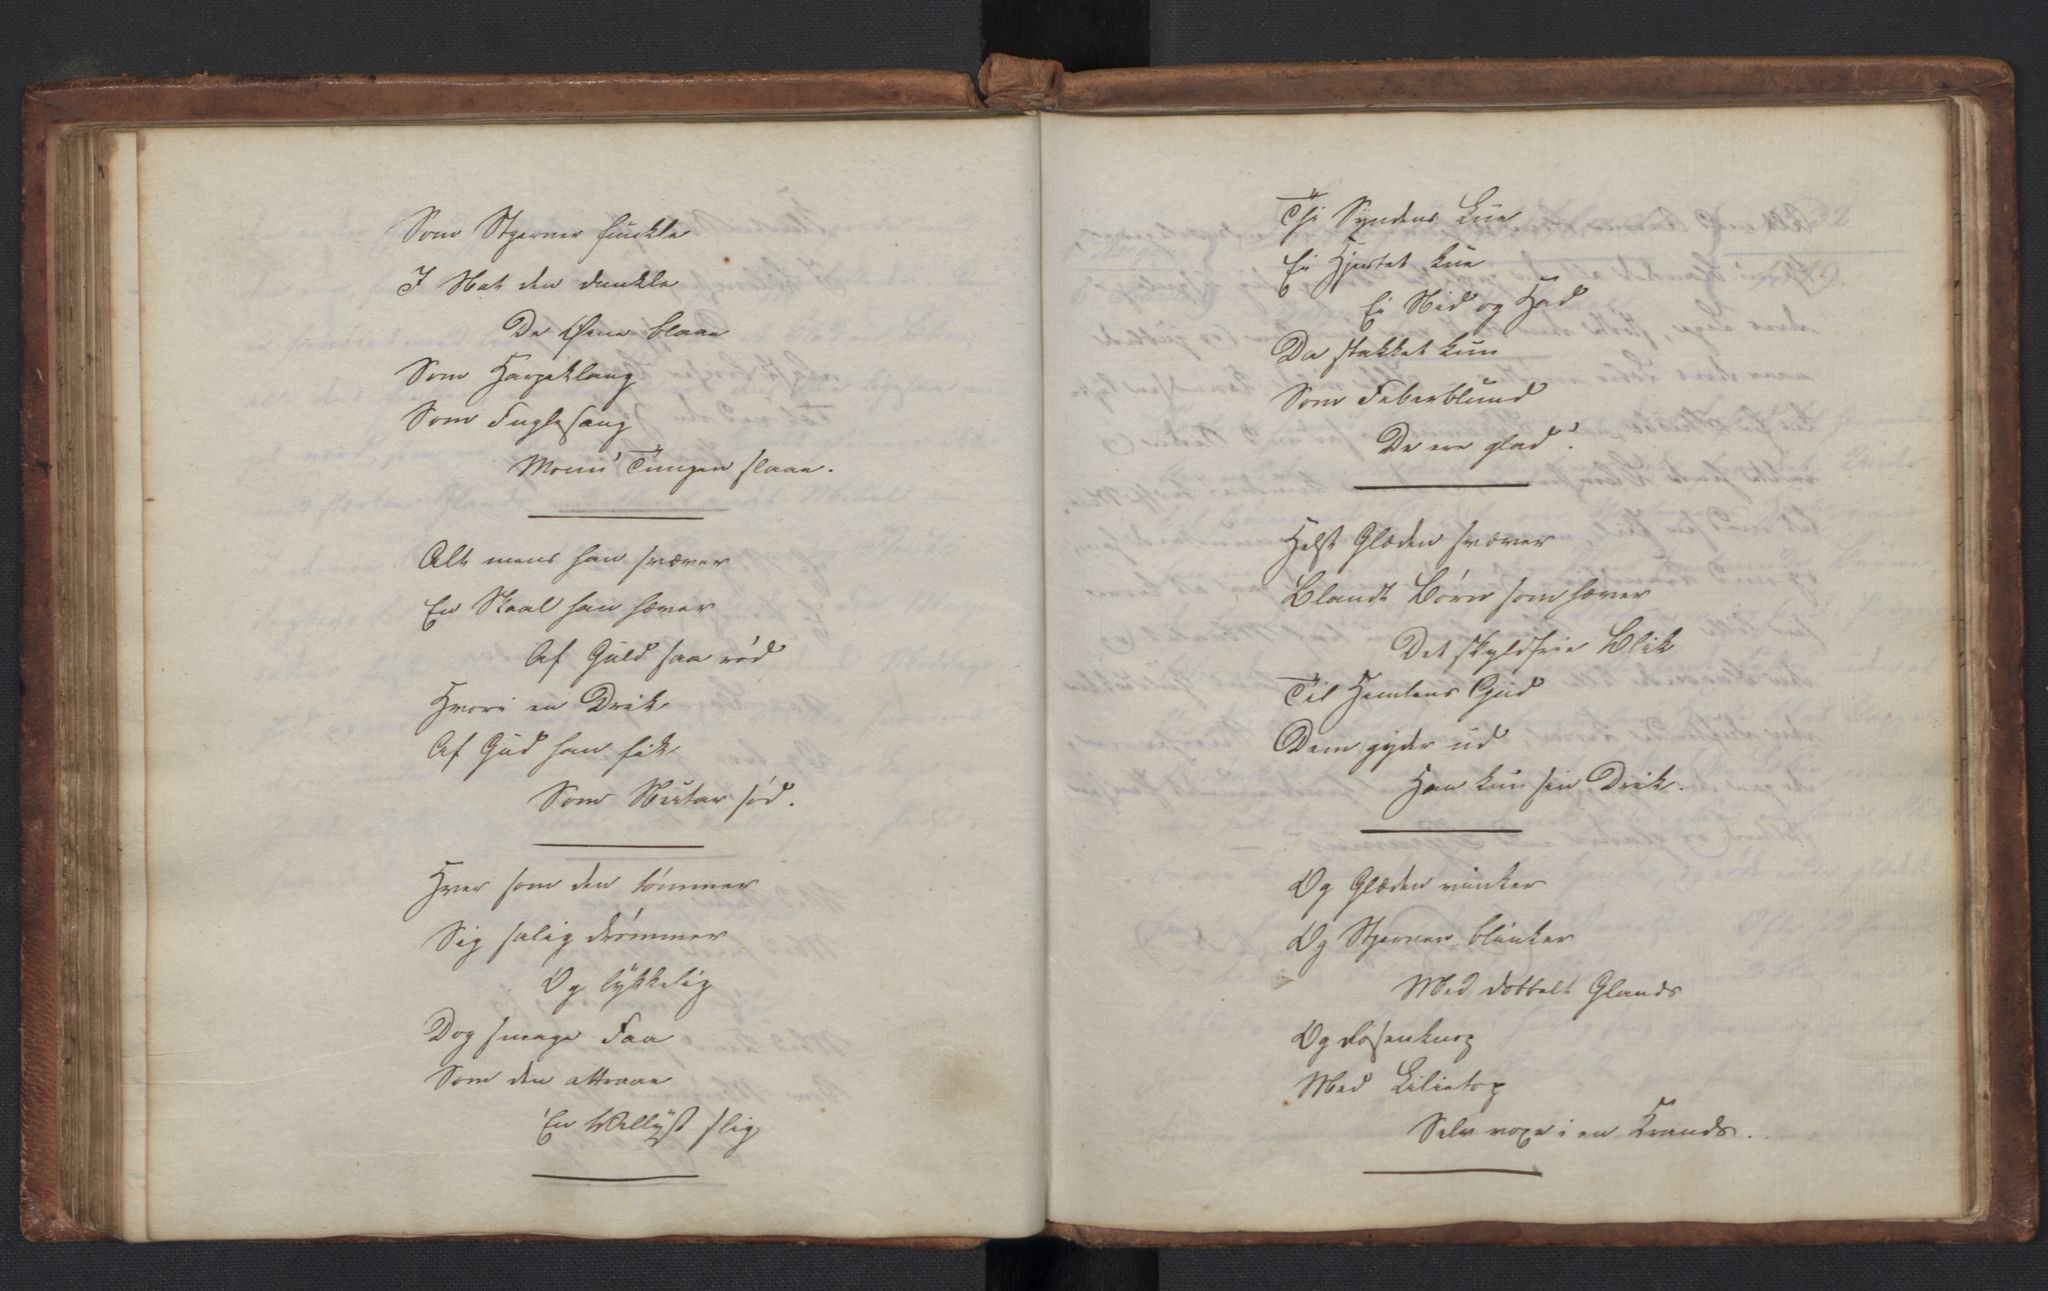 Som Stjerner funkle
I Nat den dunkle
De Øine blaae
Som Harpeklang
Som Fuglesang
Monn' Tungen slaae.
Alt mens han svæver
En Skaal han hæver
Af Guld saa rød
Hvori en Drik
Af Gud han fik
Som Nectar sød.
Hver som den tømmer
Sig salig drømmer
Og lykkelig
Dog smage Faa
Som den attraae
En Vellyst slig
Thi Syndens Lue
Ei Hjertet kue
Ei Nid og Had
De stakket kun
Som Feberblund
De ere glad'.
Helst Glæden svæver
Blandt Børn som hæver
Det skyldfrie Blik
Til Himlens Gud
Dem gyder ud
Han kun sin Drik.
Og Glæden vinker
Og Stjernen blinker
Med dobbelt Glands
Og Rosenknop
Med Lilietop
Selv voxe i en Krands.